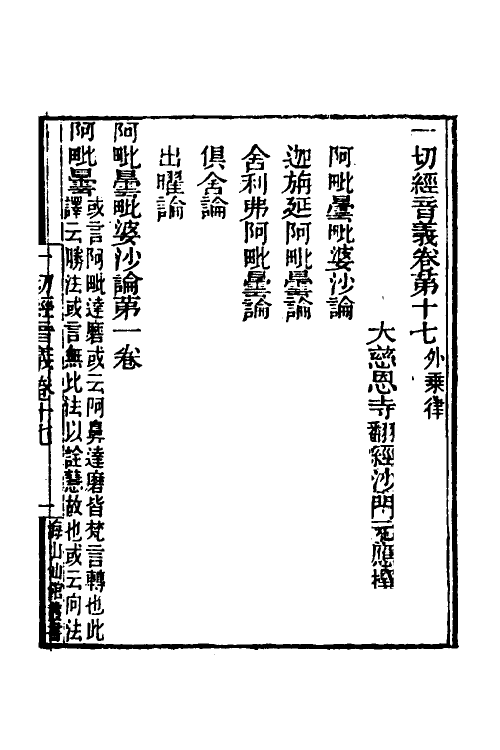 一切經音義卷第十七 外乘律
大慈恩寺翻經沙門元應撰
阿毗曇毗婆沙論
迦旃延阿毗曇論
舍利弗阿毗曇論
俱舍論
出曜論
阿毗曇毗婆沙論第一卷
阿毗曇 或言阿毗達磨或云阿鼻達磨皆梵言轉也此
譯云勝法或言無比法以詮慧故也或云向法
一切經音義卷十七 一 海山仙館叢書